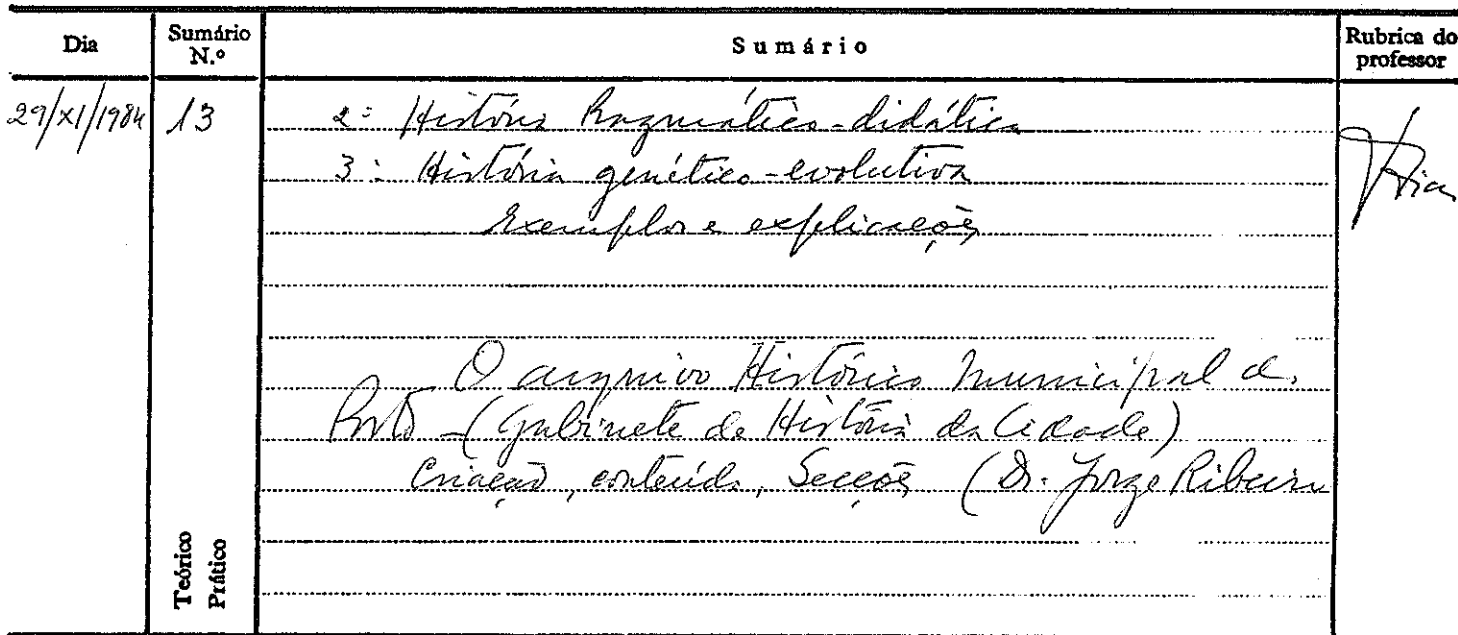 Dia
Sumário N.º
Sumário
Rubrica do professor
29/XI/1984
13
2: História Pragmático-didática
3: História genético-evolutiva
Exemplos e explicações
O arquivo Histórico Municipal do
Porto - (Gabinete de História da Cidade)
Criação, conteúdo, Secções (Dr. Jorge Ribeiro
Teórico
Prático